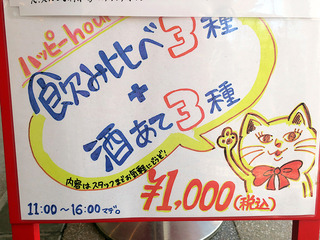 ハッピーhour
飲み比べ3種
+
酒あて3種
内容はスタッフまでお気軽にどうぞ!
¥1,000(税込)
11:00〜16:00マデ。